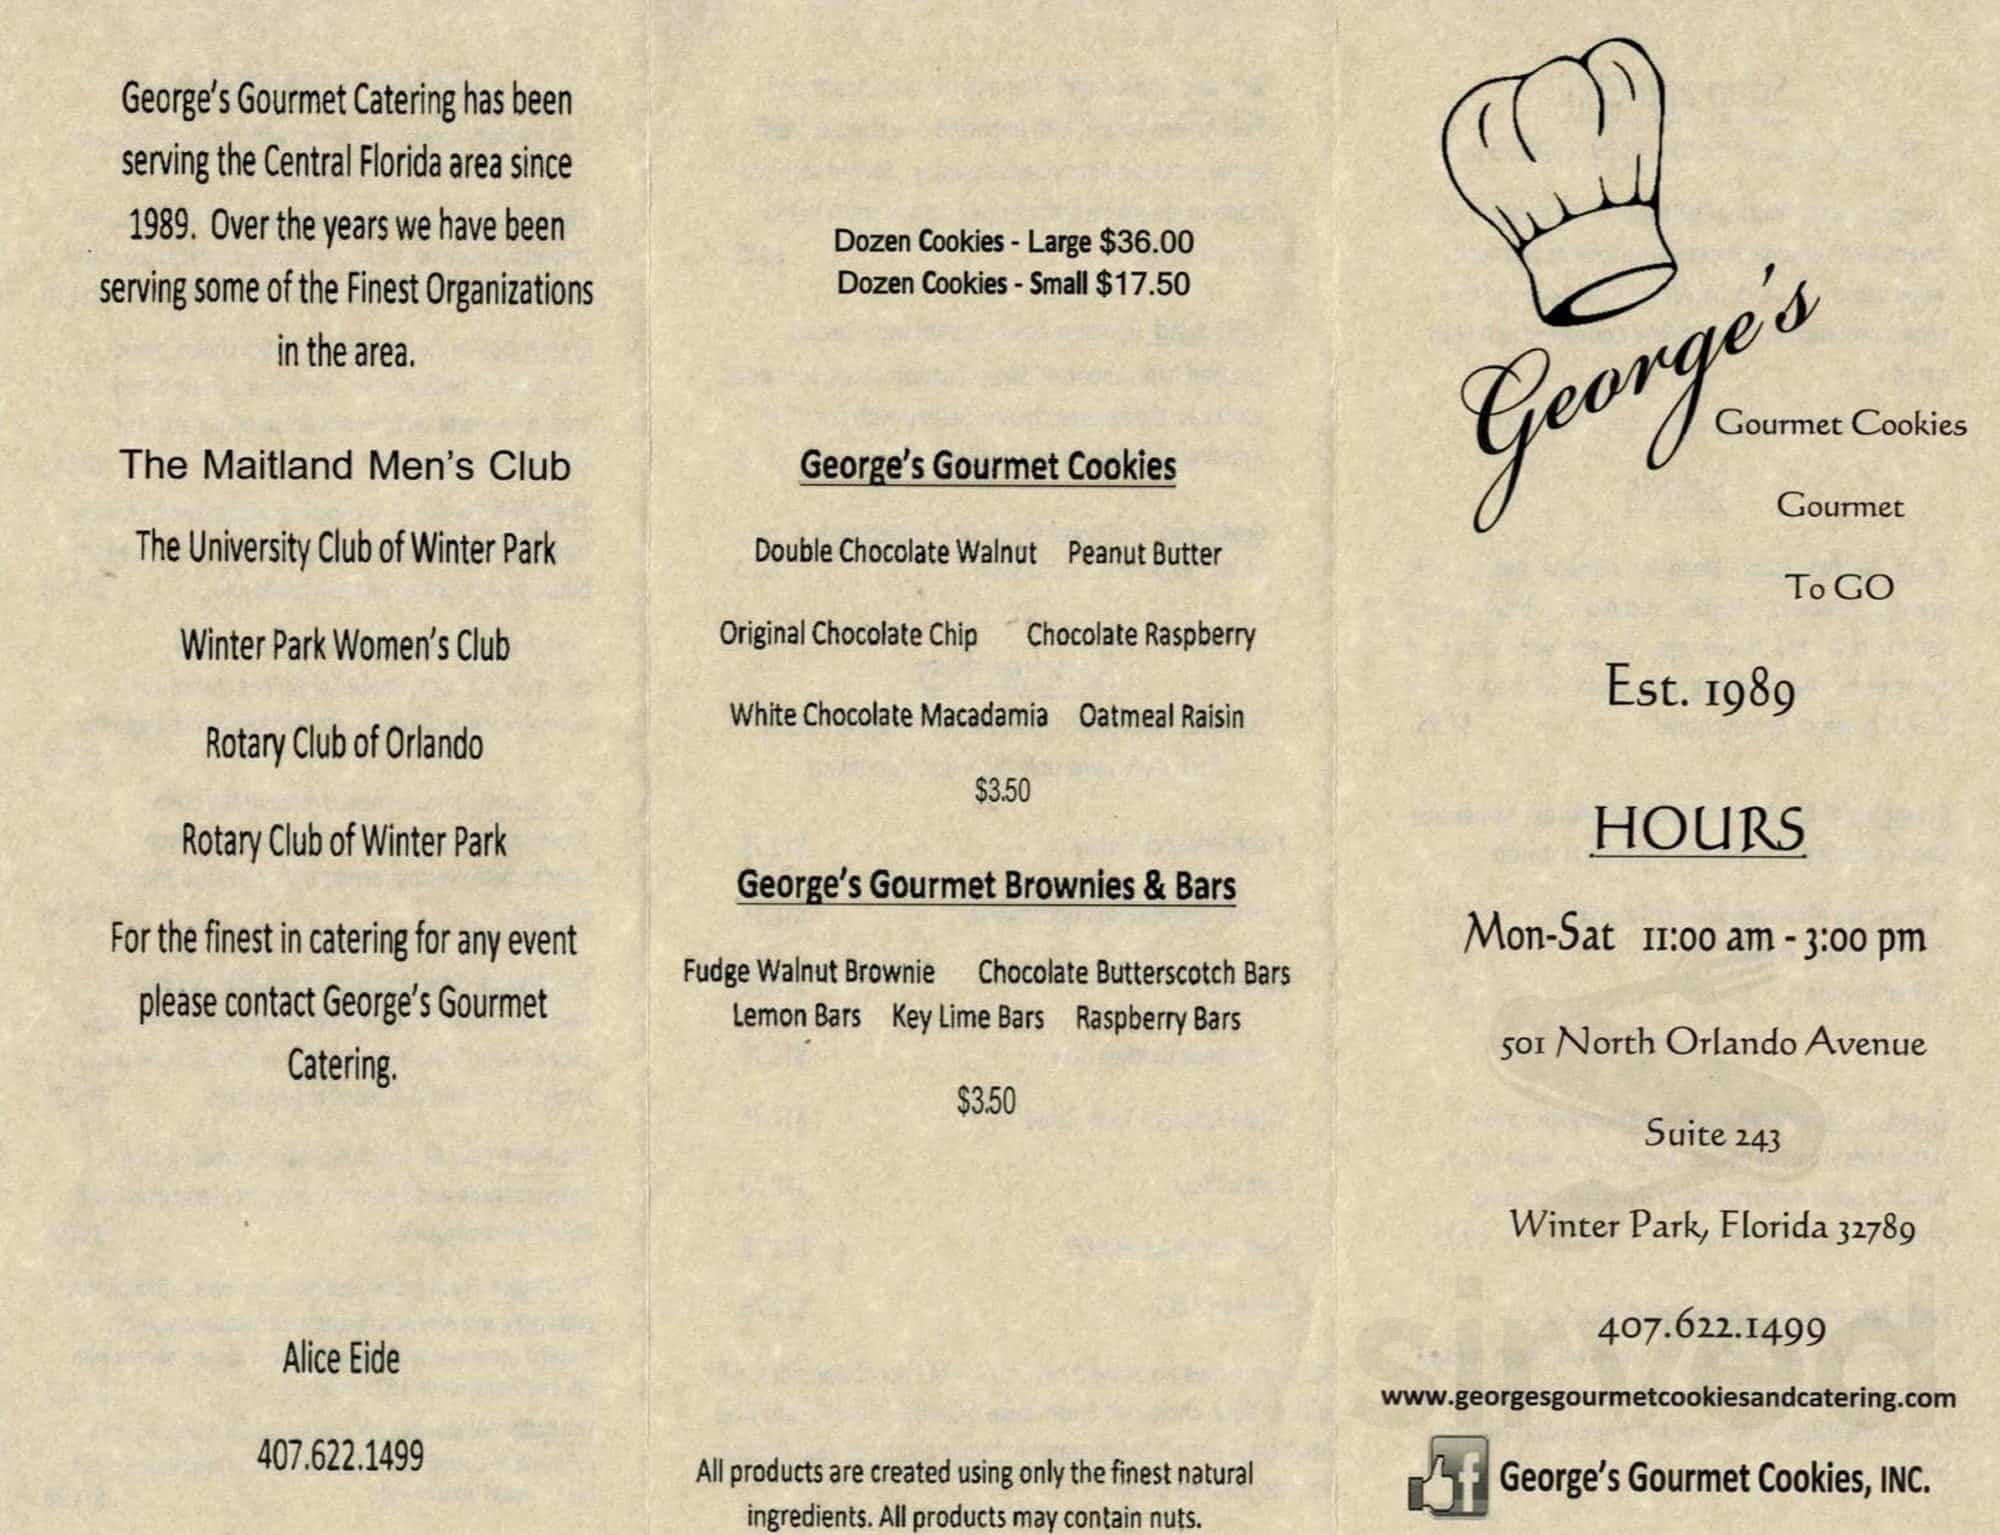 George's Gourmet Catering has been
serving the Central Florida area since
1989. Over the years we have been
serving some of the Finest Organizations
in the area.
The Maitland Men's Club
The University Club of Winter Park
Winter Park Women's Club
Rotary Club of Orlando
Rotary Club of Winter Park
For the finest in catering for any event
please contact George's Gourmet
Catering.
Alice Eide
407.622.1499
Dozen Cookies - Large $36.00
Dozen Cookies - Small $17.50
George's Gourmet Cookies
Double Chocolate Walnut Peanut Butter
Original Chocolate Chip Chocolate Raspberry
White Chocolate Macadamia Oatmeal Raisin
$3.50
George's Gourmet Brownies & Bars
Fudge Walnut Brownie Chocolate Butterscotch Bars
Lemon Bars Key Lime Bars Raspberry Bars
$3.50
All products are created using only the finest natural
ingredients. All products may contain nuts.
George's
Gourmet Cookies
Gourmet
To GO
Est. 1989
HOURS
Mon-Sat 11:00 am - 3:00 pm
501 North Orlando Avenue
Suite 243
Winter Park, Florida 32789
407.622.1499
sirved
www.georgesgourmetcookiesandcatering.com
f George's Gourmet Cookies, INC.